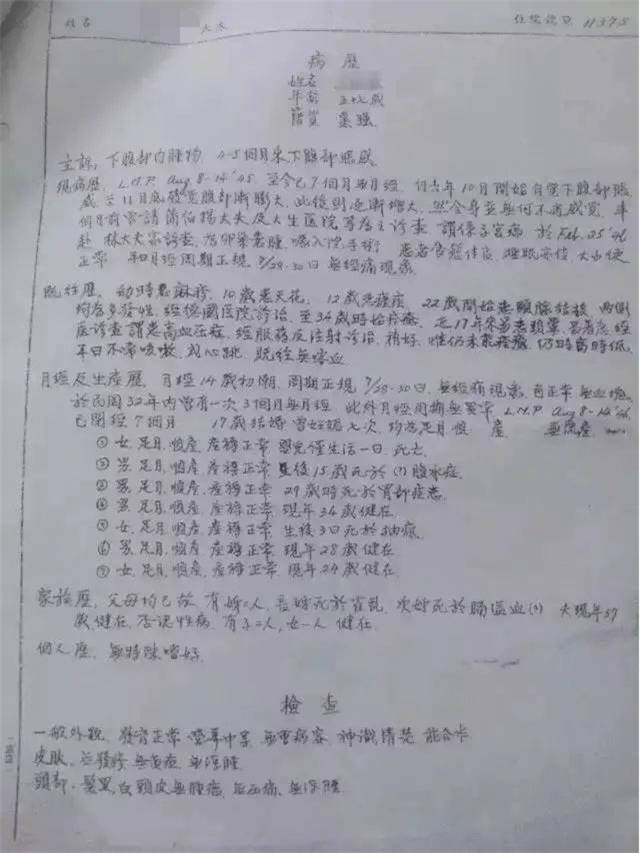 姓名 大水 住院號數 11375
病歷
姓名
年齡 五十七歲
籍貫
主訴, 下腹部内腫物 4-5個月來下腹部脹感
現病歷, L.M.P. Aug 8-14'45, 至今已7個月無月經, 自去年10月開始自覺下腹部脹
感 至11月底發覺腹部漸膨大, 此後則逐漸增大, 然全身並無何不適感覺, 車
大夫及大生医院等 診查 謂係子宮瘤 於 Feb. 25'46
赴 林大夫家診查, 為卵巢囊腫, 囑入院手術 患者食慾佳良, 睡眠安佳, 大小便
正常 月經周期正規 7/29-30日 無經痛現象
既往歷, 幼時患麻疹, 10歲患天花, 12歲患瘧疾, 22歲開始患頸腺結核, 兩側
均為多發性, 經德國医院診治, 至34歲時始痊癒, 近17年來常患頭暈,
症診查謂患高血壓症, 經服藥及注射診治, 稍好, 惟仍未痊癒, 仍時高時低
平日不常咳嗽, 心跳, 既往無嗽血
月經及生產歷, 月經14歲初潮, 周期正規 7/29-30日, 無經痛現象, 色正常 無血塊,
於民國32年内曾有一次3個月無月經 此外月經周期無異常 L.M.P. Aug 8-14'45,
已閉經7個月 17歲結婚 曾妊娠七次, 均為足月順產
① 女, 足月, 順產, 產褥正常 嬰兒僅生活一日, 死亡,
② 男, 足月, 順產, 產褥正常 後15歲死於(?)腹水症,
③ 男, 足月, 順產, 產褥正常 29歲時死於胃部症患
④ 男, 足月, 順產, 產褥正常, 現年34歲健在,
⑤ 女, 足月, 順產, 產褥正常, 生後3日死於抽瘋,
⑥ 男, 足月, 順產, 產褥正常, 現年28歲健在,
⑦ 女, 足月, 順產, 產褥正常, 現年24歲健在
家族歷, 父母均已故 有姊二人, 長姊死於霍乱 次姊死於腦溢血(?) 夫現年59
歲健在, 否認性病, 有子二人, 女一人 健在,
個人歷, 無特殊嗜好,
檢查
一般外觀, 發育正常 營養中等, 無重病容 神識清楚 能合作
皮膚, 無發疹, 無黃疸, 無浮腫
頭部, 髮黑白, 頭皮無腫瘤, 無壓痛, 無浮腫